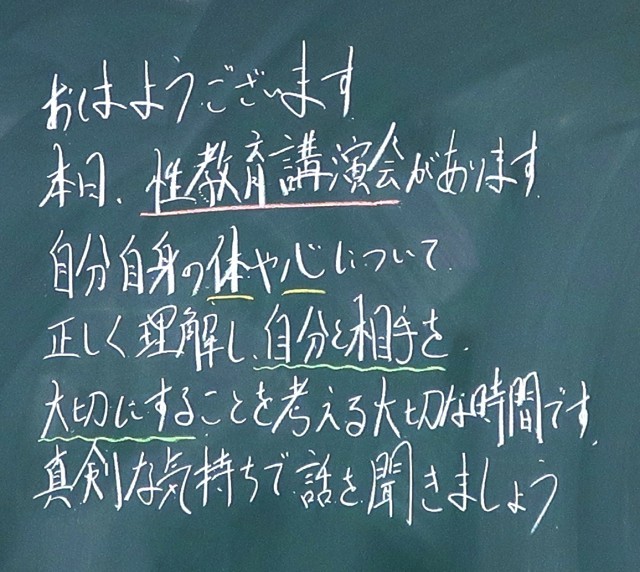 おはようございます
本日、性教育講演会があります
自分自身の体や心について
正しく理解し、自分と相手を
大切にすることを考える大切な時間です。
真剣な気持ちで話を聞きましょう